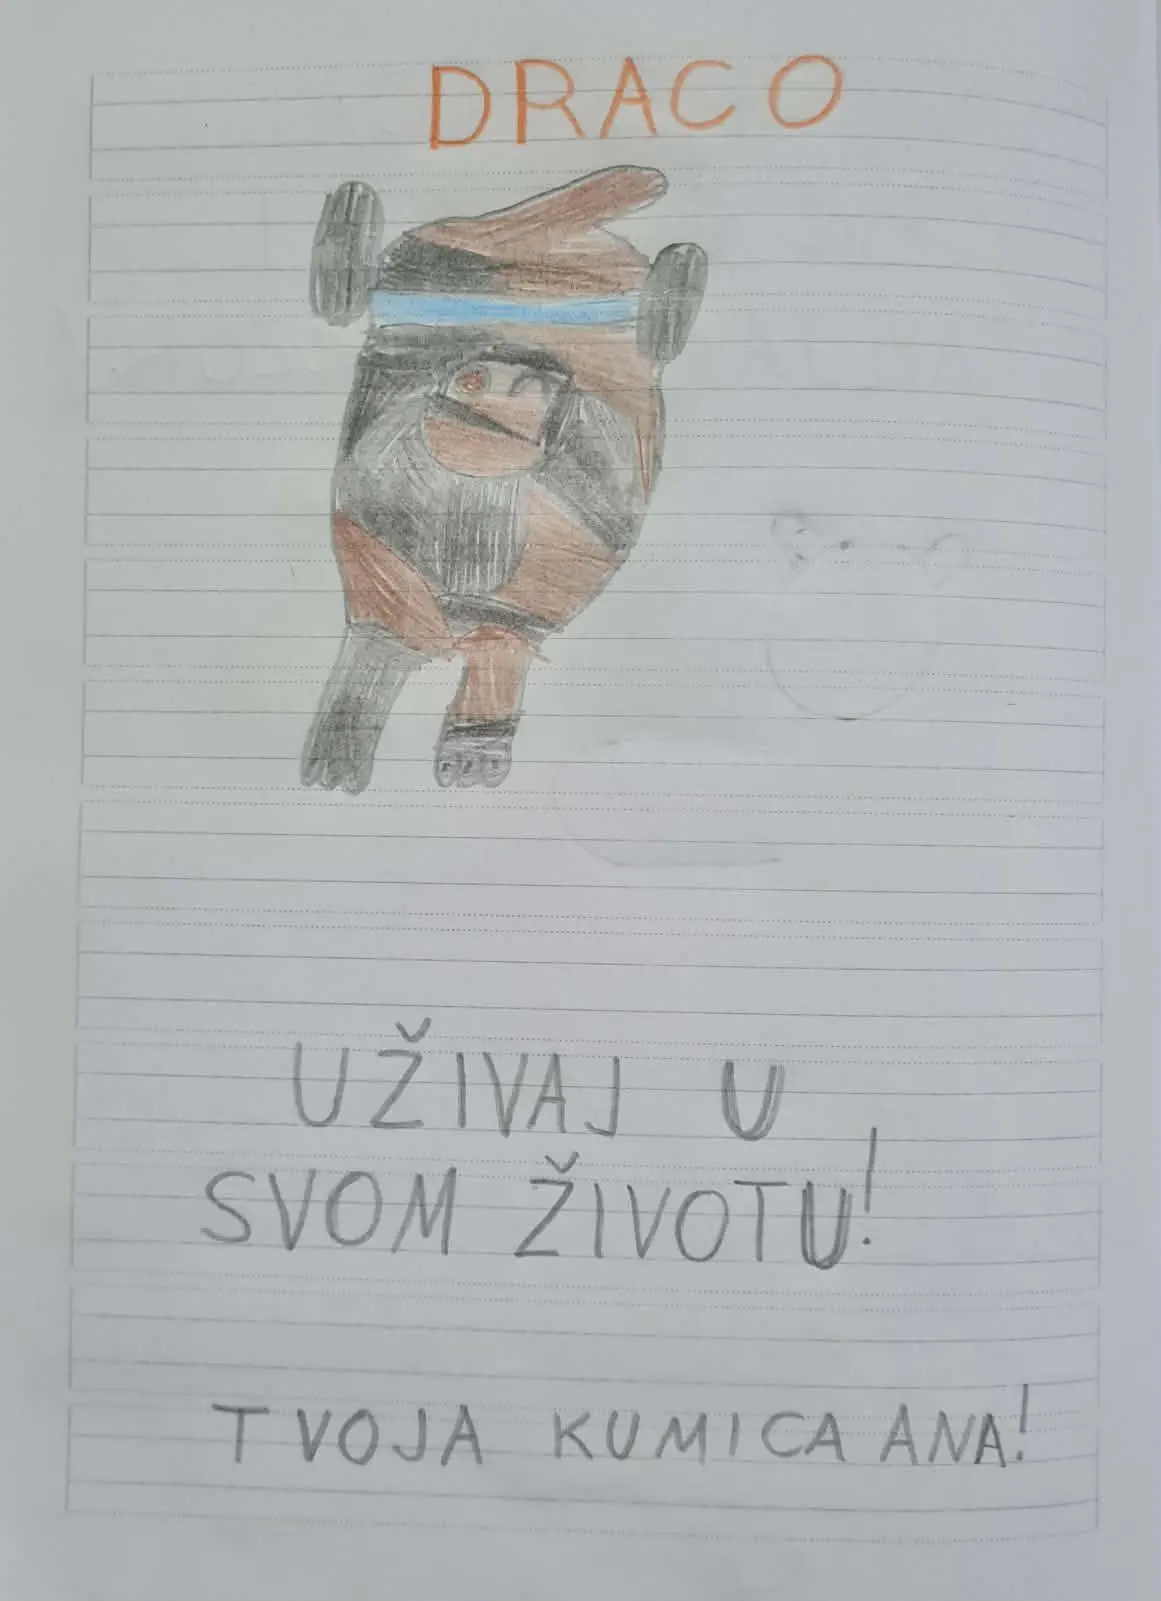 DRACO
UŽIVAJ U
SVOM ŽIVOTU!
TVOJA KUMICA ANA!